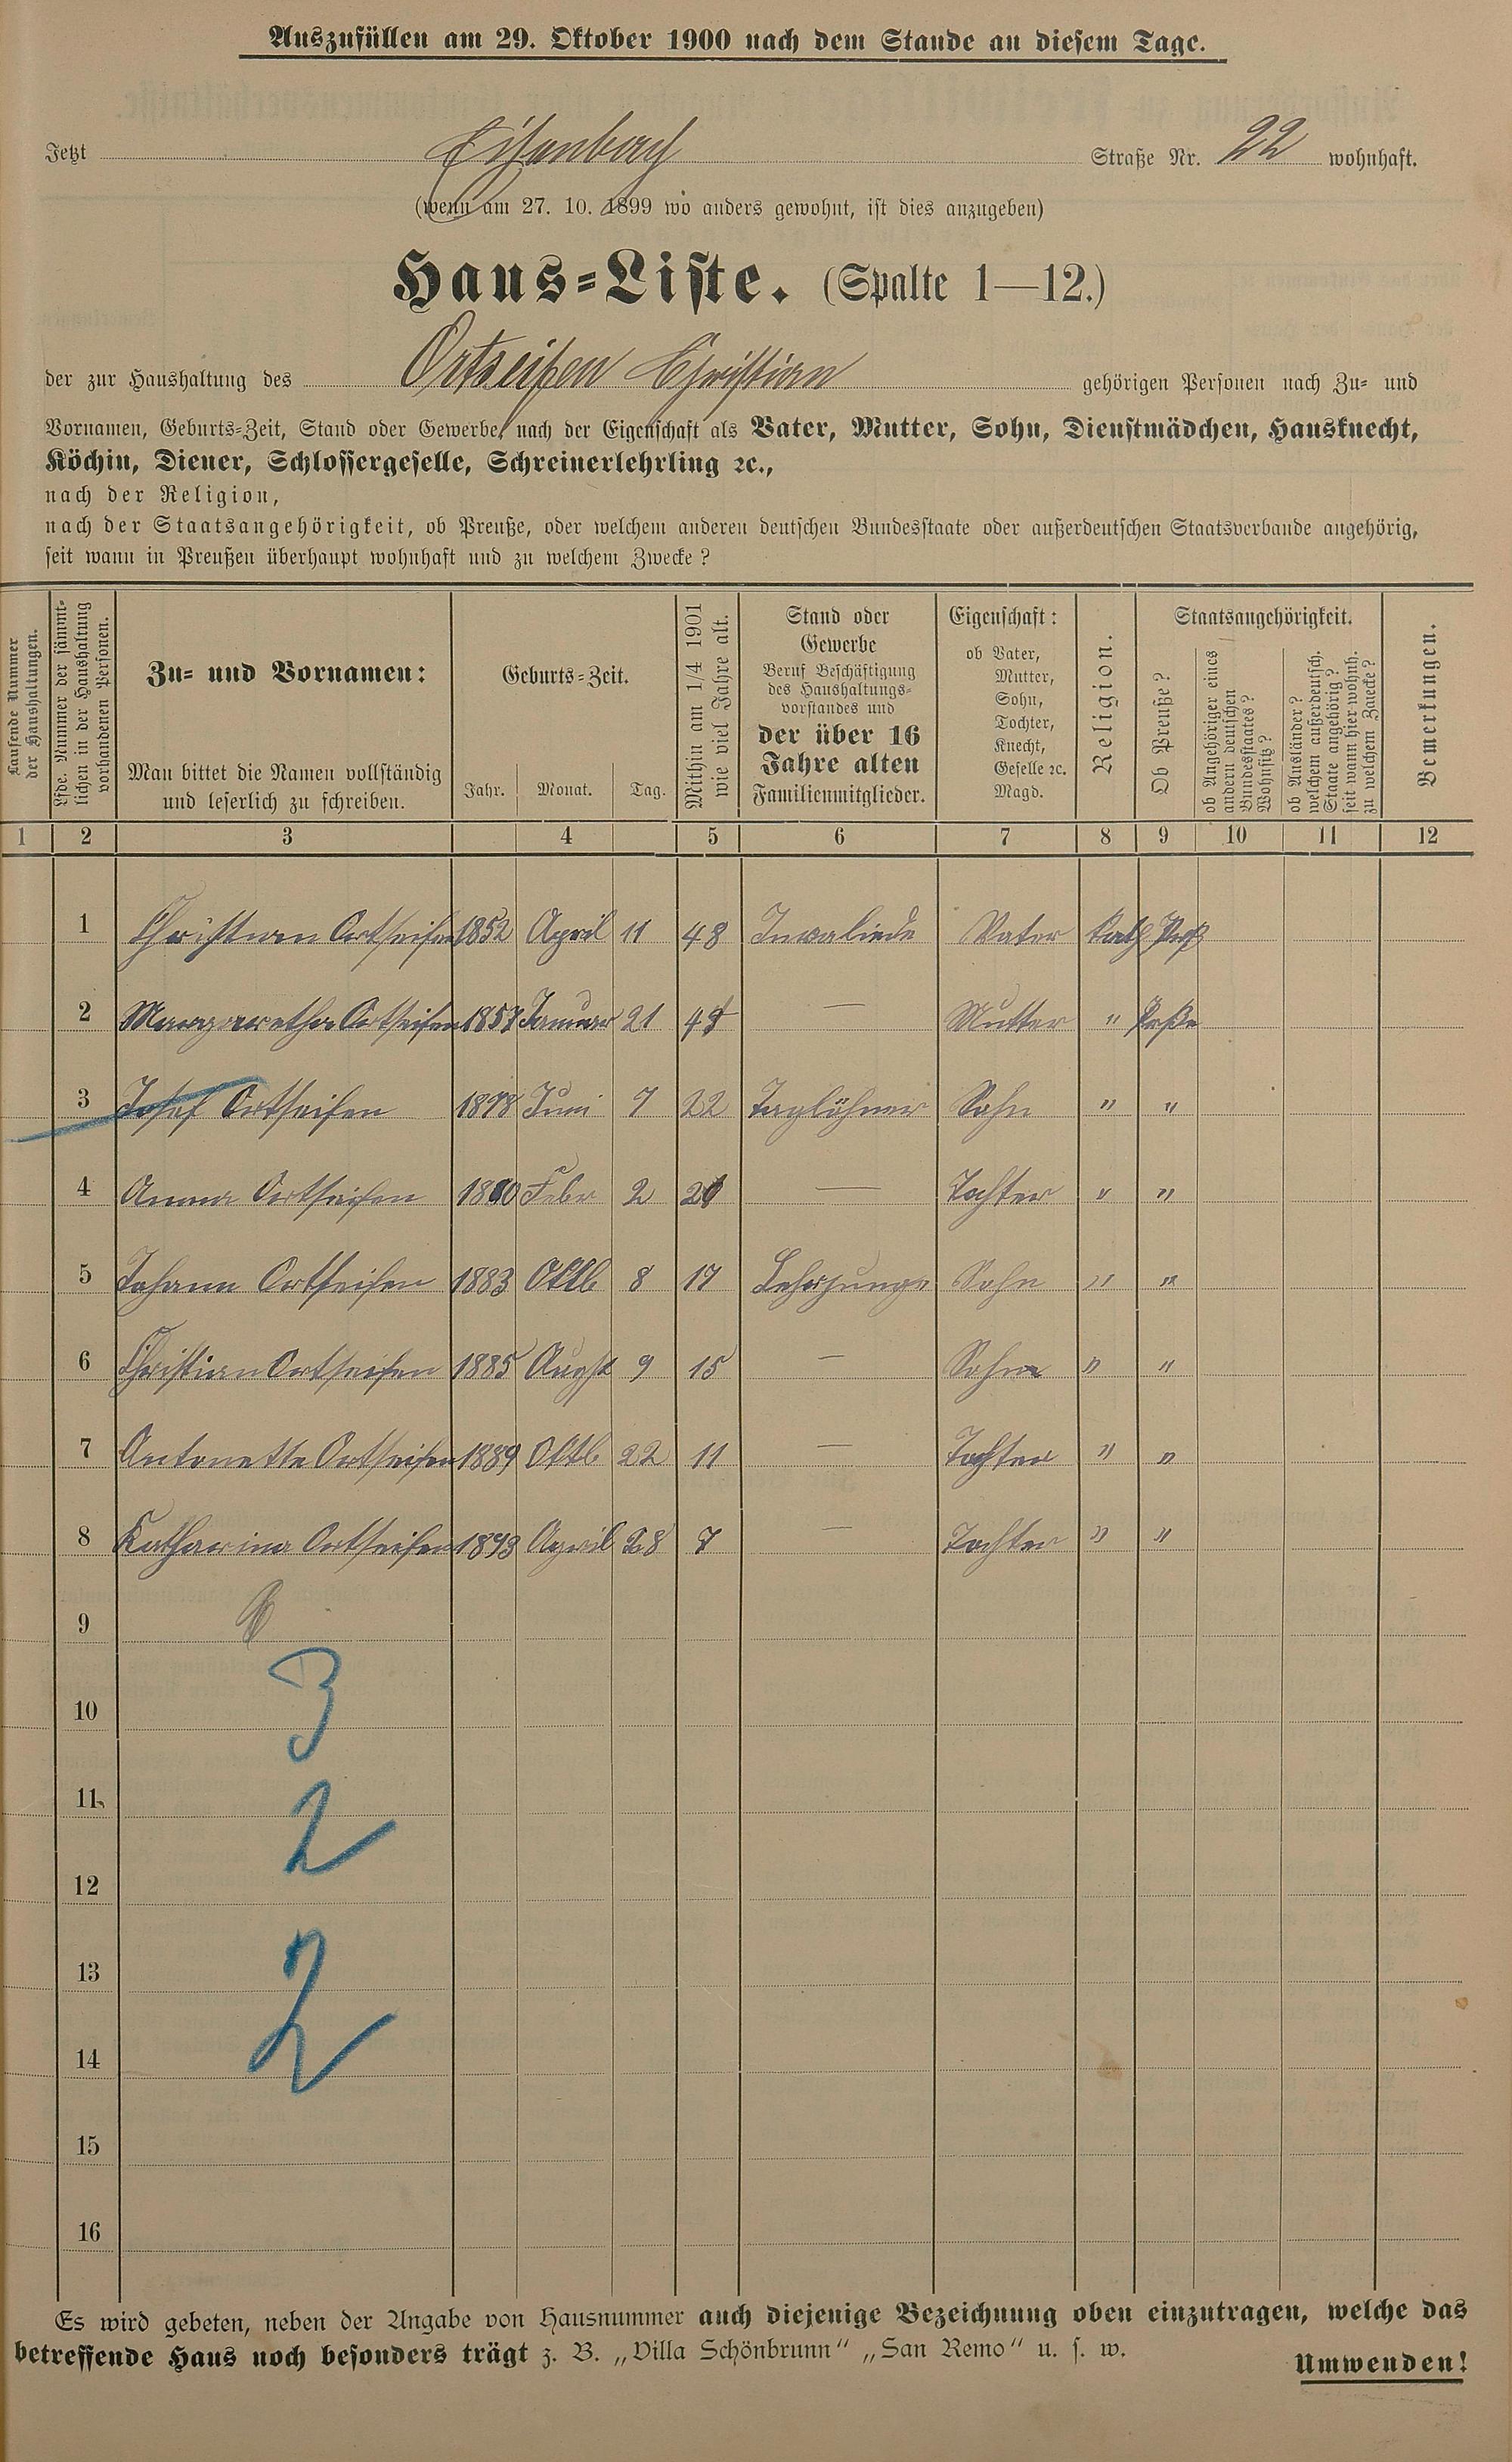 Auszufüllen am 29. Oktober 1900 nach dem Stande an diesem Tage.
Jetzt Straße Nr. 22 wohnhaft.
(wenn am 27. 10. 1899 wo anders gewohnt, ist dies anzugeben)
Haus-Liste. (Spalte 1—12.)
der zur Haushaltung des Ortseifen Christian gehörigen Personen nach Zu- und
Vornamen, Geburts-Zeit, Stand oder Gewerbe, nach der Eigenschaft als Vater, Mutter, Sohn, Dienstmädchen, Hausknecht,
Köchin, Diener, Schlossergeselle, Schreinerlehrling ꝛc.,
nach der Religion,
nach der Staatsangehörigkeit, ob Preuße, oder welchem anderen deutschen Bundesstaate oder außerdeutschen Staatsverbande angehörig,
seit wann in Preußen überhaupt wohnhaft und zu welchem Zwecke?
Laufende Nummer
der Haushaltungen.
Lfde. Nummer der sämmt-
lichen in der Haushaltung
vorhandenen Personen.
Zu- und Vornamen:
Man bittet die Namen vollständig
und leserlich zu schreiben.
Geburts-Zeit.
Jahr. Monat. Tag.
Mithin am 1/4 1901
wie viel Jahre alt.
Stand oder
Gewerbe
Beruf Beschäftigung
des Haushaltungs-
vorstandes und
der über 16
Jahre alten
Familienmitglieder.
Eigenschaft:
ob Vater,
Mutter,
Sohn,
Tochter,
Knecht,
Geselle ꝛc.
Magd.
Religion.
Staatsangehörigkeit.
Ob Preuße?
ob Angehöriger eines
andern deutschen
Bundesstaates?
Wohnsitz?
ob Ausländer?
welchem außerdeutsch.
Staate angehörig?
seit wann hier wohnh.
zu welchem Zwecke?
Bemerkungen.
1 2 3 4 5 6 7 8 9 10 11 12
1 Christian Ortseifen 1852 April 11 48 Invaliede Vater Kath
2 Margaretha Ortseifen 1857 Januar 21 Mutter "
3 Josef Ortseifen 1878 Juni 7 22 Taglöhner Sohn " "
4 Anna Ortseifen 1880 Febr 2 Tochter " "
5 Johann Ortseifen 1883 Oktb 8 17 Lehrjunge Sohn " "
6 Christian Ortseifen 1885 Augst 9 15 — Sohn " "
7 Antonette Ortseifen 1889 Oktb 22 11 — Tochter " "
8 Katharina Ortseifen 1893 April 28 7 — Tochter " "
9
3
10
11
2
12
13
2
14
15
16
Es wird gebeten, neben der Angabe von Hausnummer auch diejenige Bezeichnung oben einzutragen, welche das
betreffende Haus noch besonders trägt z. B. „Villa Schönbrunn“ „San Remo“ u. s. w.
Umwenden!